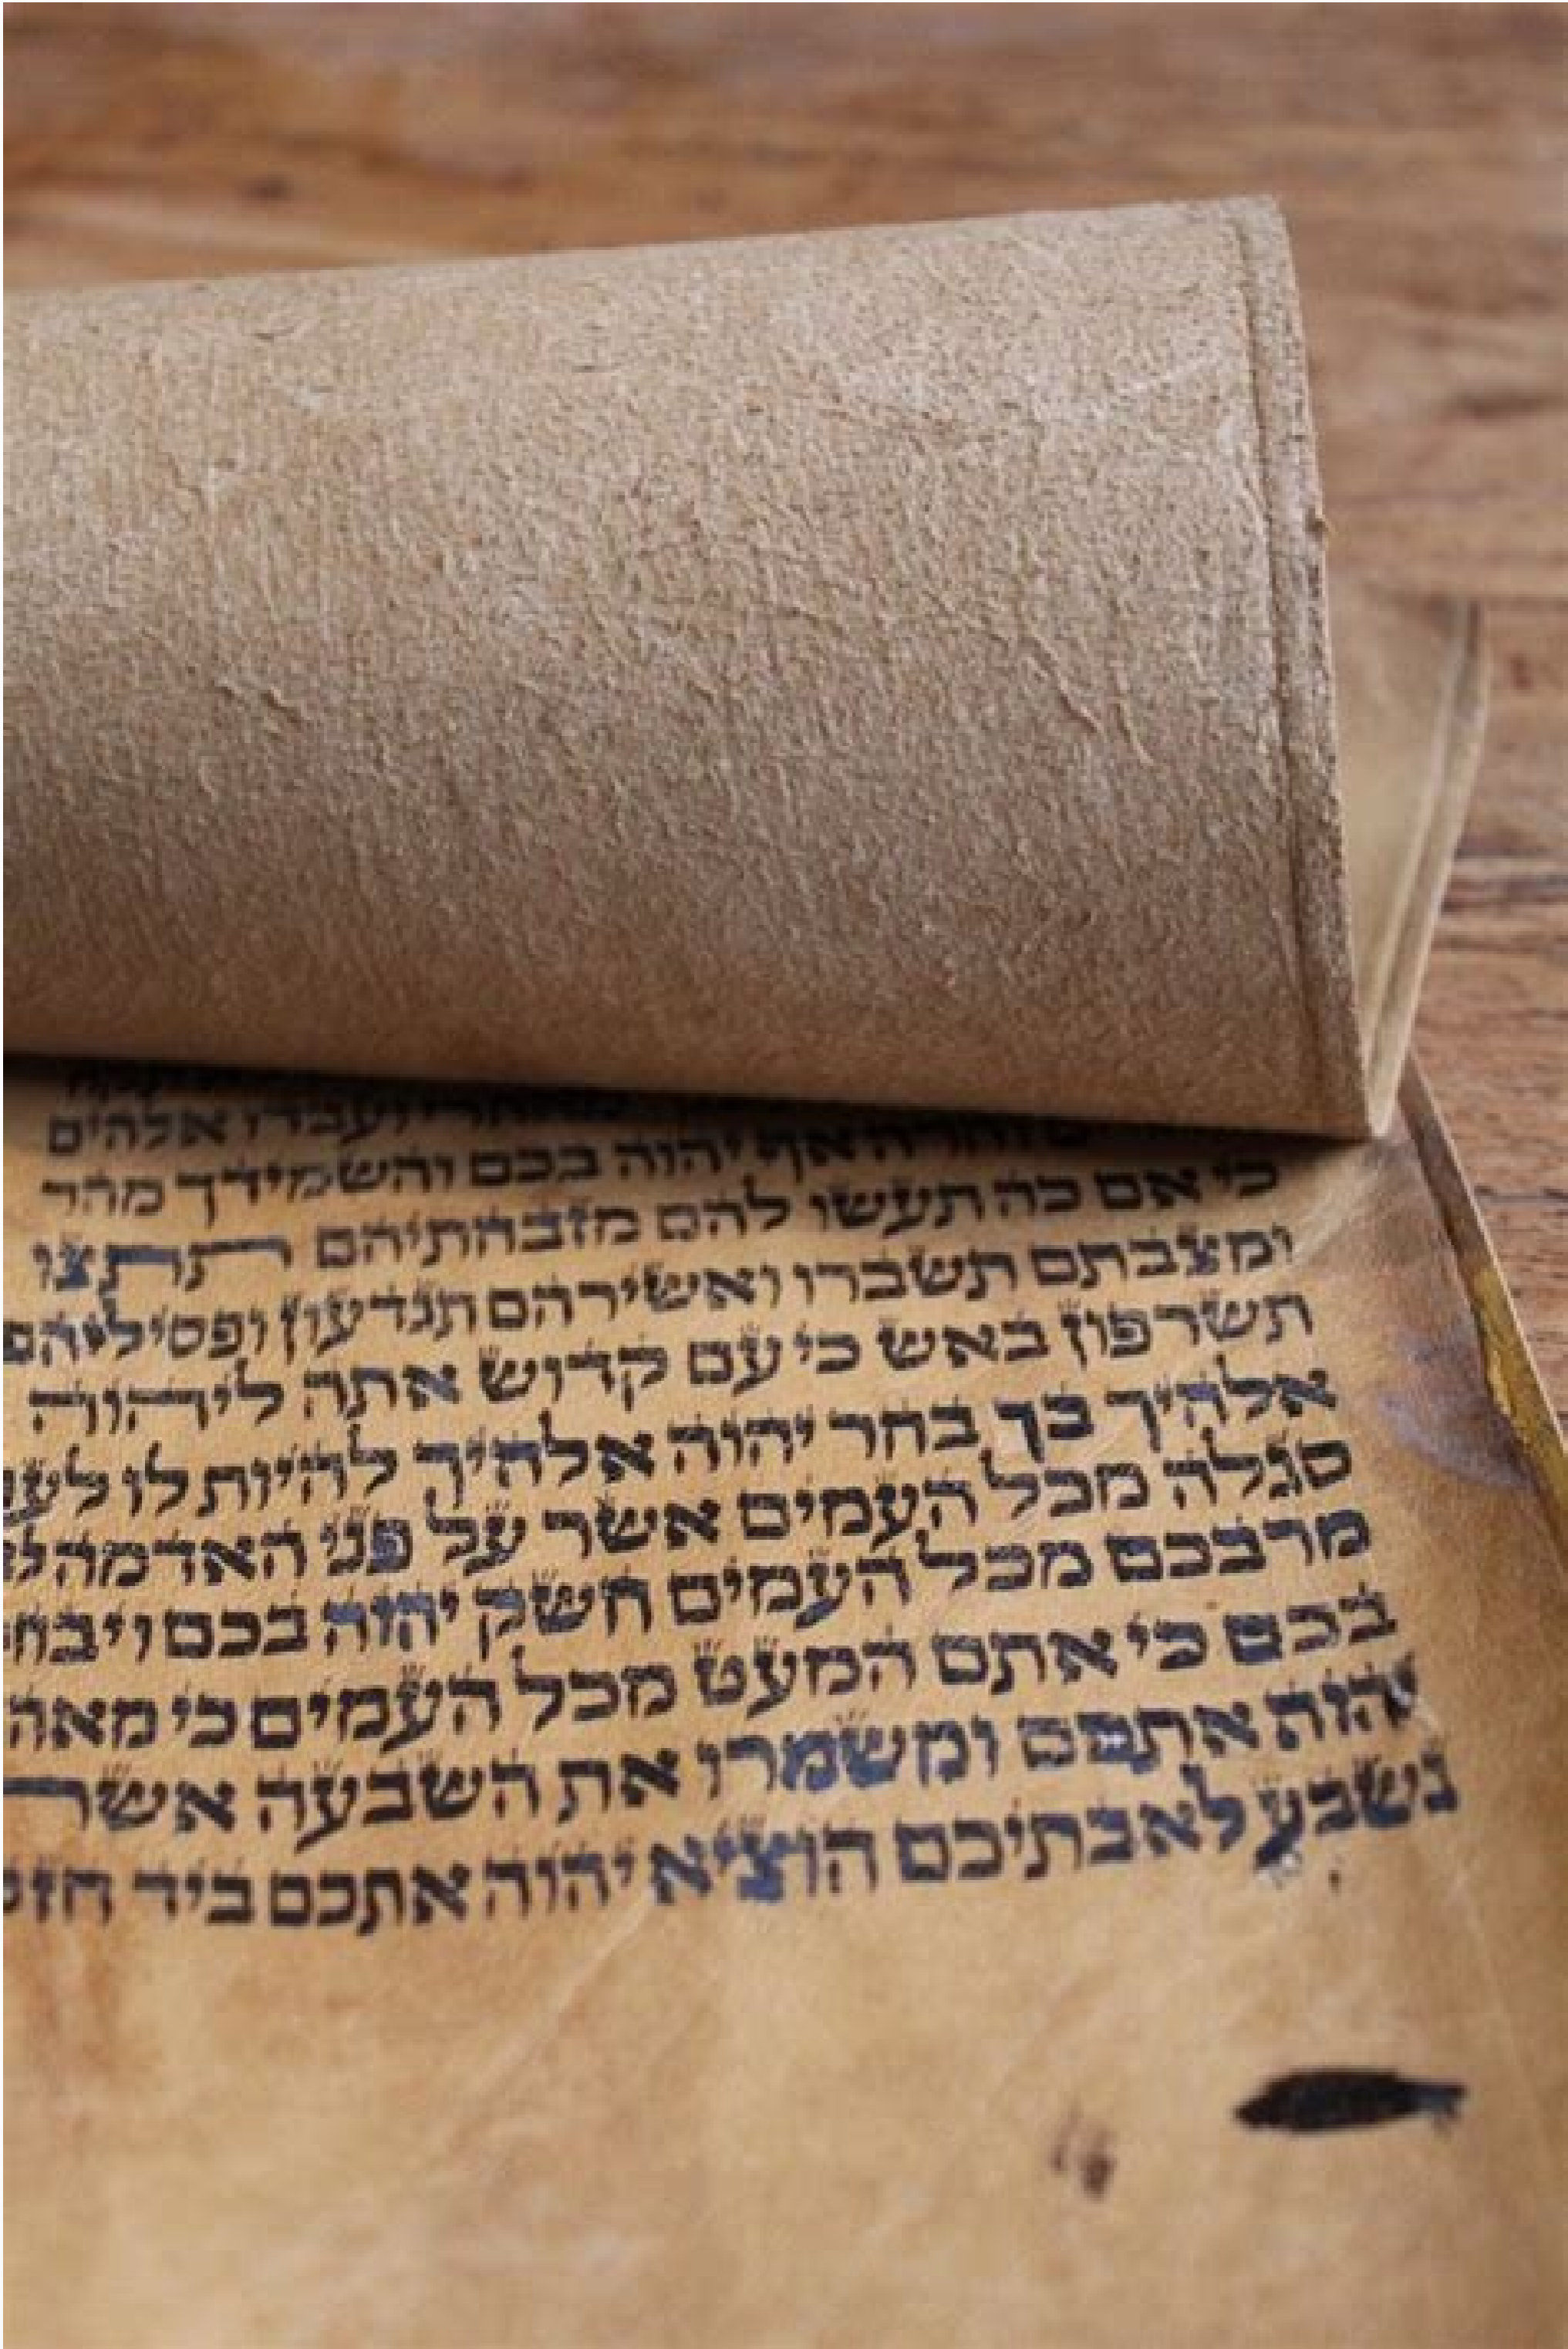 מאחרי ועבדו אלהים
וחרה אף יהוה בכם והשמידך מהר
כי אם כה תעשו להם מזבחתיהם תתצו
ומצבתם תשברו ואשירהם תגדעון ופסיליהם
תשרפון באש כי עם קדוש אתה ליהוה
אלהיך בך בחר יהוה אלהיך להיות לו לע
סגלה מכל העמים אשר על פני האדמה ל
מרבכם מכל העמים חשק יהוה בכם ויבח
בכם כי אתם המעט מכל העמים כי מאה
יהוה אתכם ומשמרו את השבעה אשר
נשבע לאבתיכם הוציא יהוה אתכם ביד חז